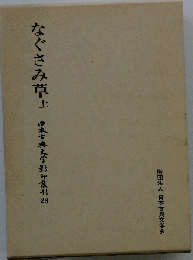 なぐさみ草 上
日本古典文学影印叢刊 28
財団法人 日本古典文学会